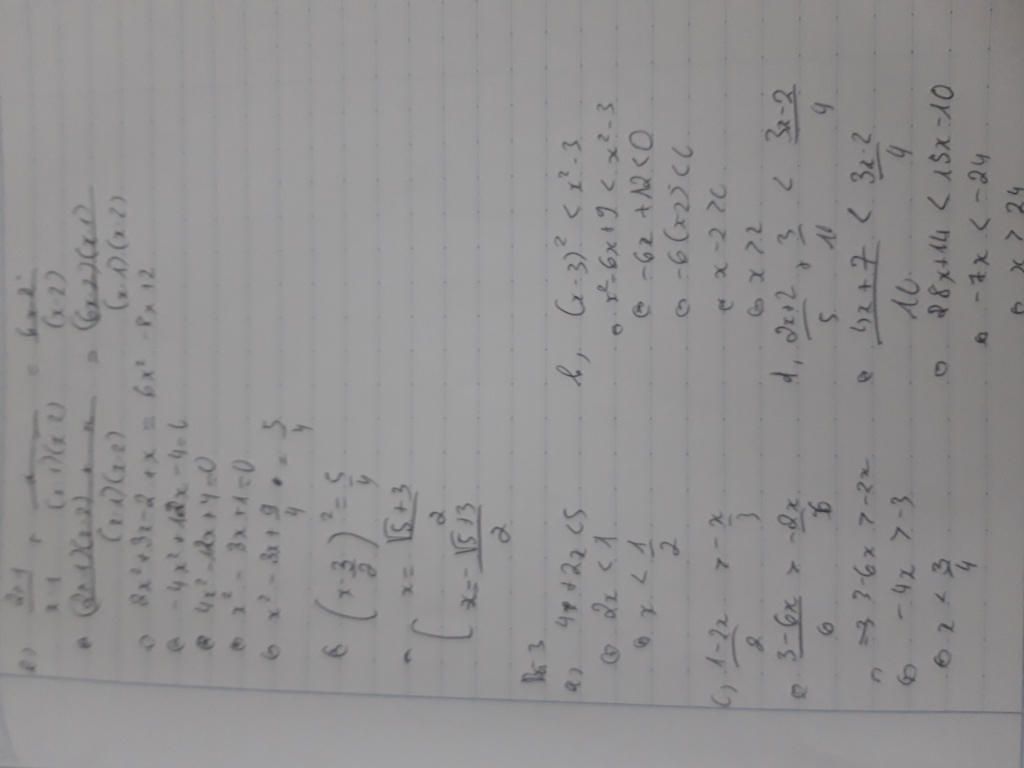 (2x-1)(x+2) + x = (6x-2)(x-1)
(x-1)(x-2) (x-1)(x-2)
⇔ 2x²+3x-2+x = 6x²-8x+2
⇔ -4x²+12x-4=0
⇔ 4x²-12x+4=0
⇔ x²-3x+1=0
⇔ x²-3x+9/4 = 5/4
⇔ (x-3/2)² = 5/4
⇔ [ x = √5+3/2
x = -√5+3/2
Bài 3
a, 4+2x<5
⇔ 2x<1
⇔ x<1/2
b, (x-3)² < x²-3
⇔ x²-6x+9 < x²-3
⇔ -6x+12<0
⇔ -6(x-2)<0
⇔ x-2>0
⇔ x>2
c, 1-2x/2 > -x/3
⇔ 3-6x/6 > -2x/6
⇔ 3-6x > -2x
⇔ -4x > -3
⇔ x < 3/4
d, 2x+2/5 + 3/10 < 3x-2/4
⇔ 4x+7/10 < 3x-2/4
⇔ 28x+14 < 15x-10
⇔ -7x < -24
⇔ x > 24